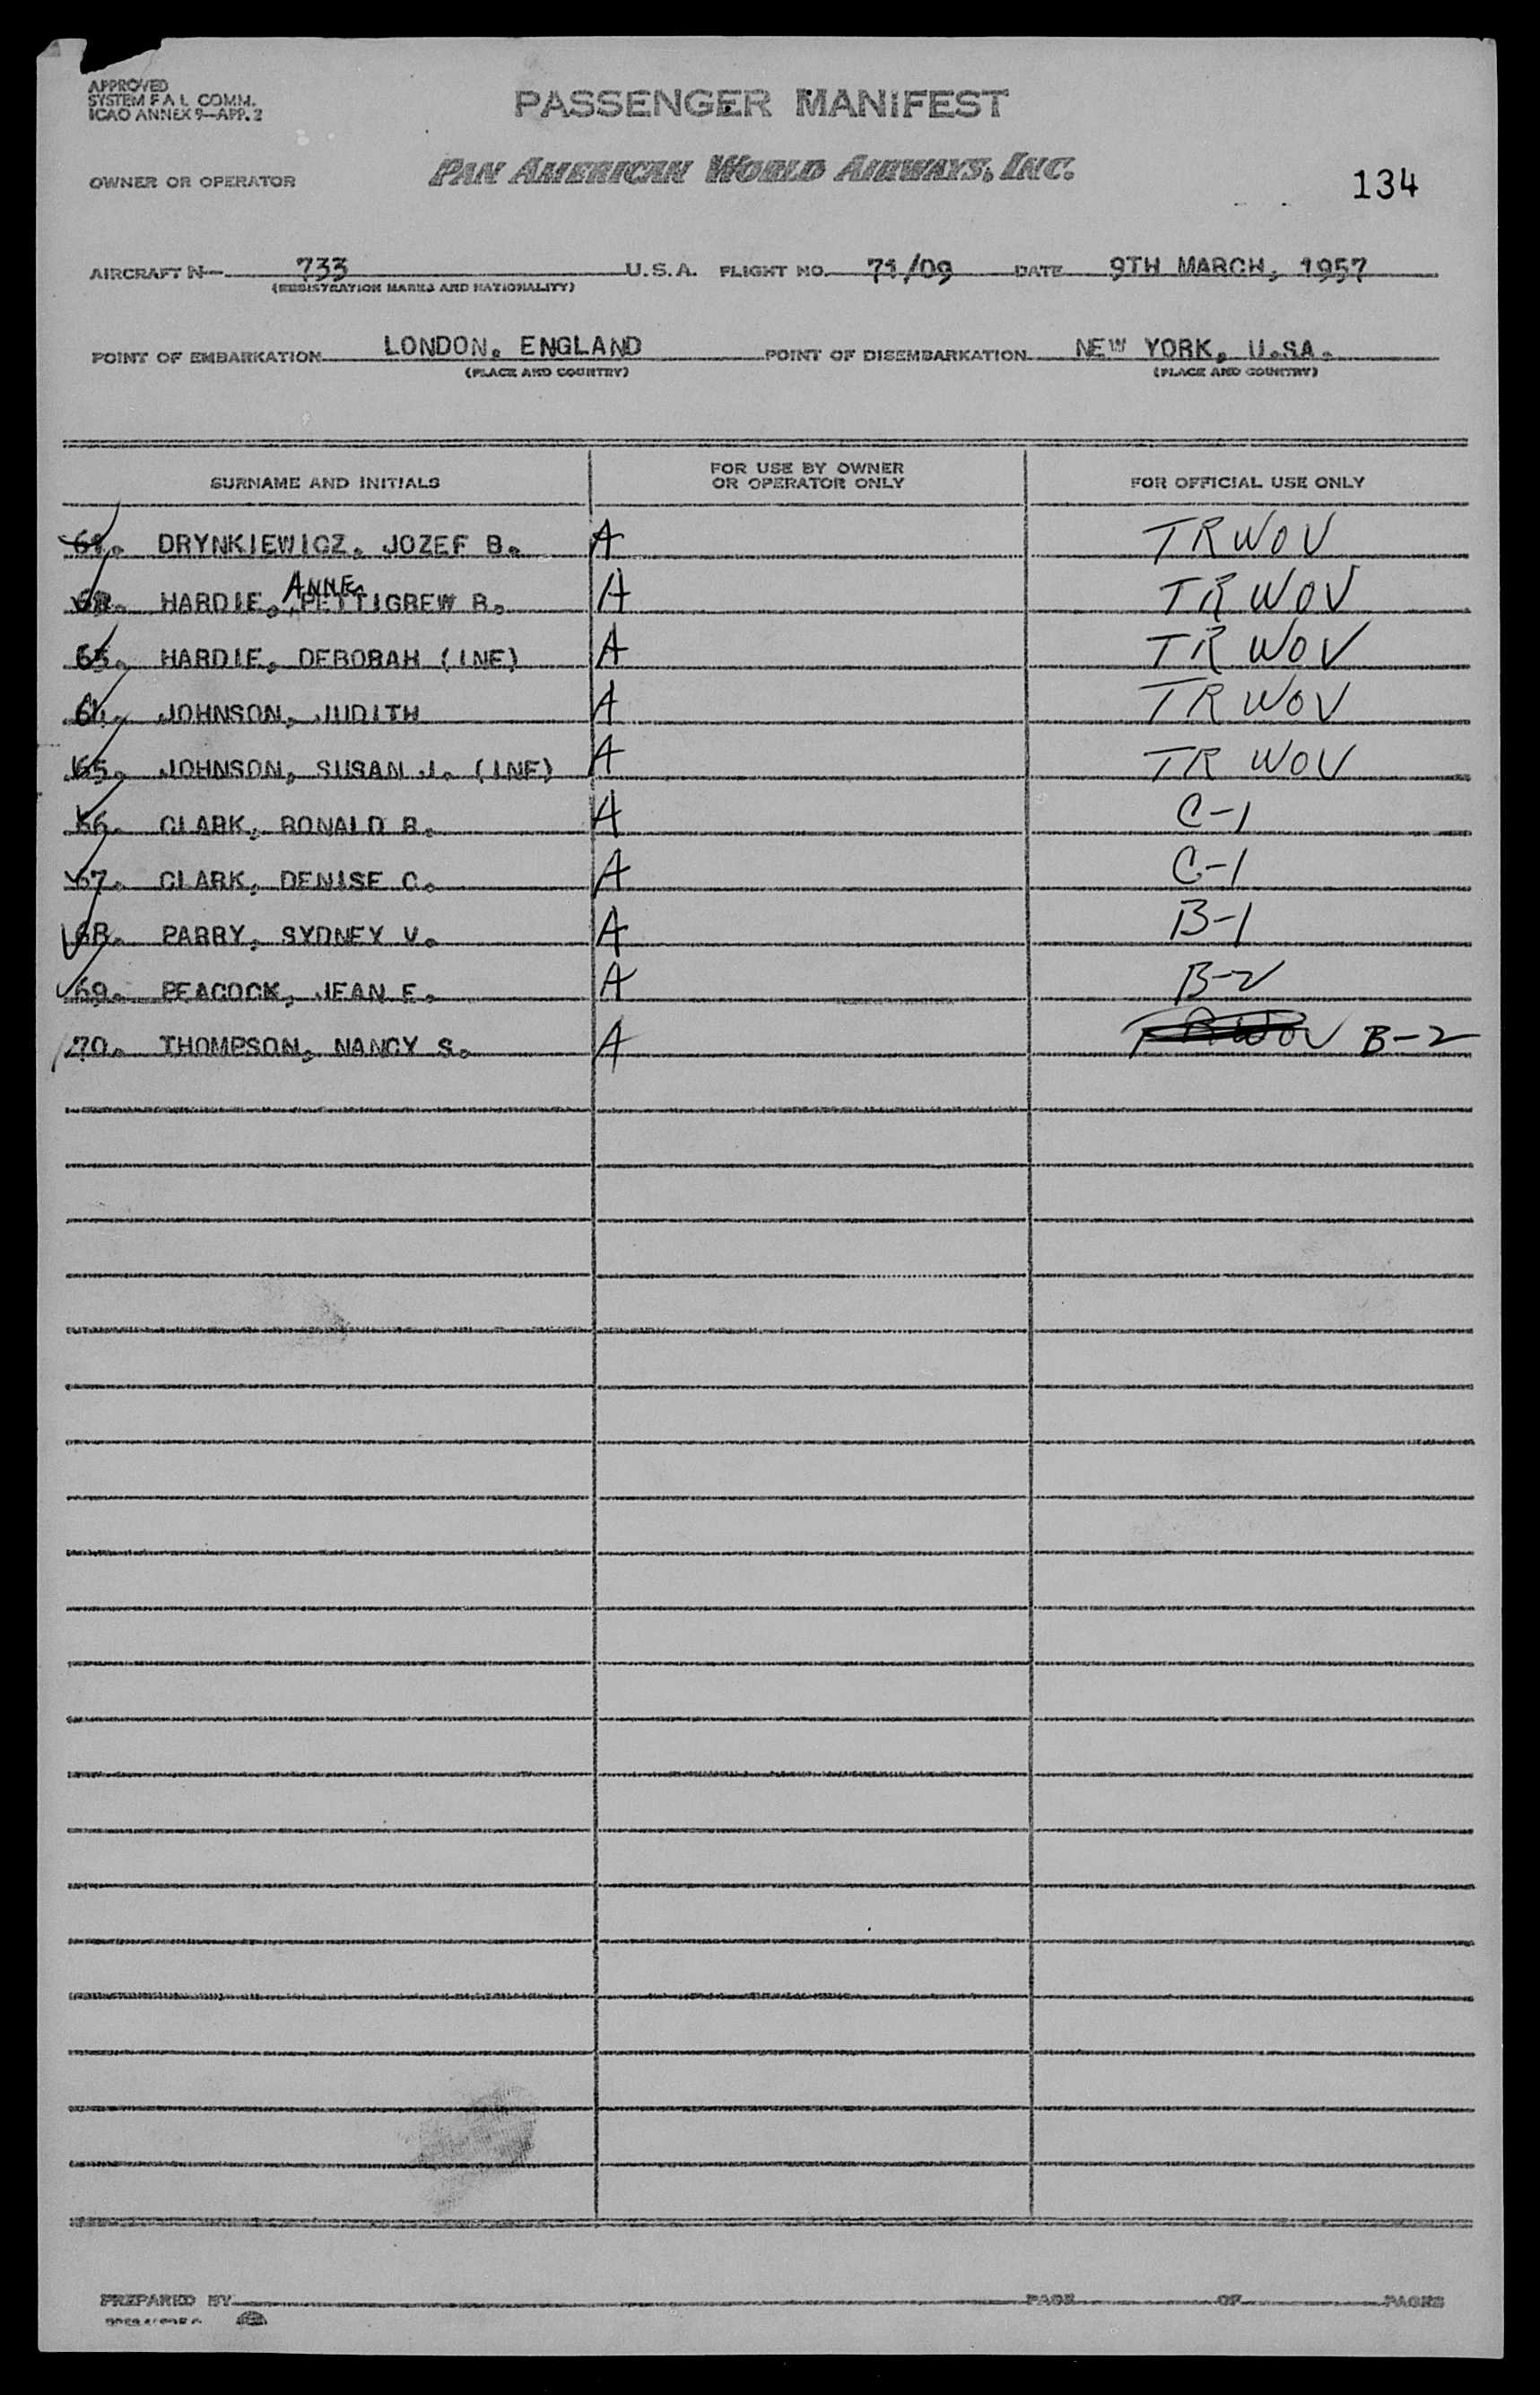 APPROVED
SYSTEM F A L COMM.
ICAO ANNEX 9—APP. 2
PASSENGER MANIFEST
OWNER OR OPERATOR PAN AMERICAN WORLD AIRWAYS, INC.
134
AIRCRAFT N— 733 U.S.A. FLIGHT NO. 71/09 DATE 9TH MARCH, 1957
(REGISTRATION MARKS AND NATIONALITY)
POINT OF EMBARKATION LONDON, ENGLAND POINT OF DISEMBARKATION NEW YORK, U.SA.
(PLACE AND COUNTRY) (PLACE AND COUNTRY)
SURNAME AND INITIALS FOR USE BY OWNER OR OPERATOR ONLY FOR OFFICIAL USE ONLY
61. DRYNKIEWICZ, JOZEF B. A TRWOV
62. HARDIE, ANNE PETTIGREW R. A TRWOV
63. HARDIE, DEBORAH (INF) A TRWOV
64. JOHNSON, JUDITH A TRWOV
65. JOHNSON, SUSAN J. (INF) A TRWOV
66. CLARK, RONALD R. A C-1
67. CLARK, DENISE C. A C-1
68. PARRY, SYDNEY V. A B-1
69. PEACOCK, JEAN E. A B-2
70. THOMPSON, NANCY S. A TRWOV B-2
PREPARED BY PAGE OF PAGES